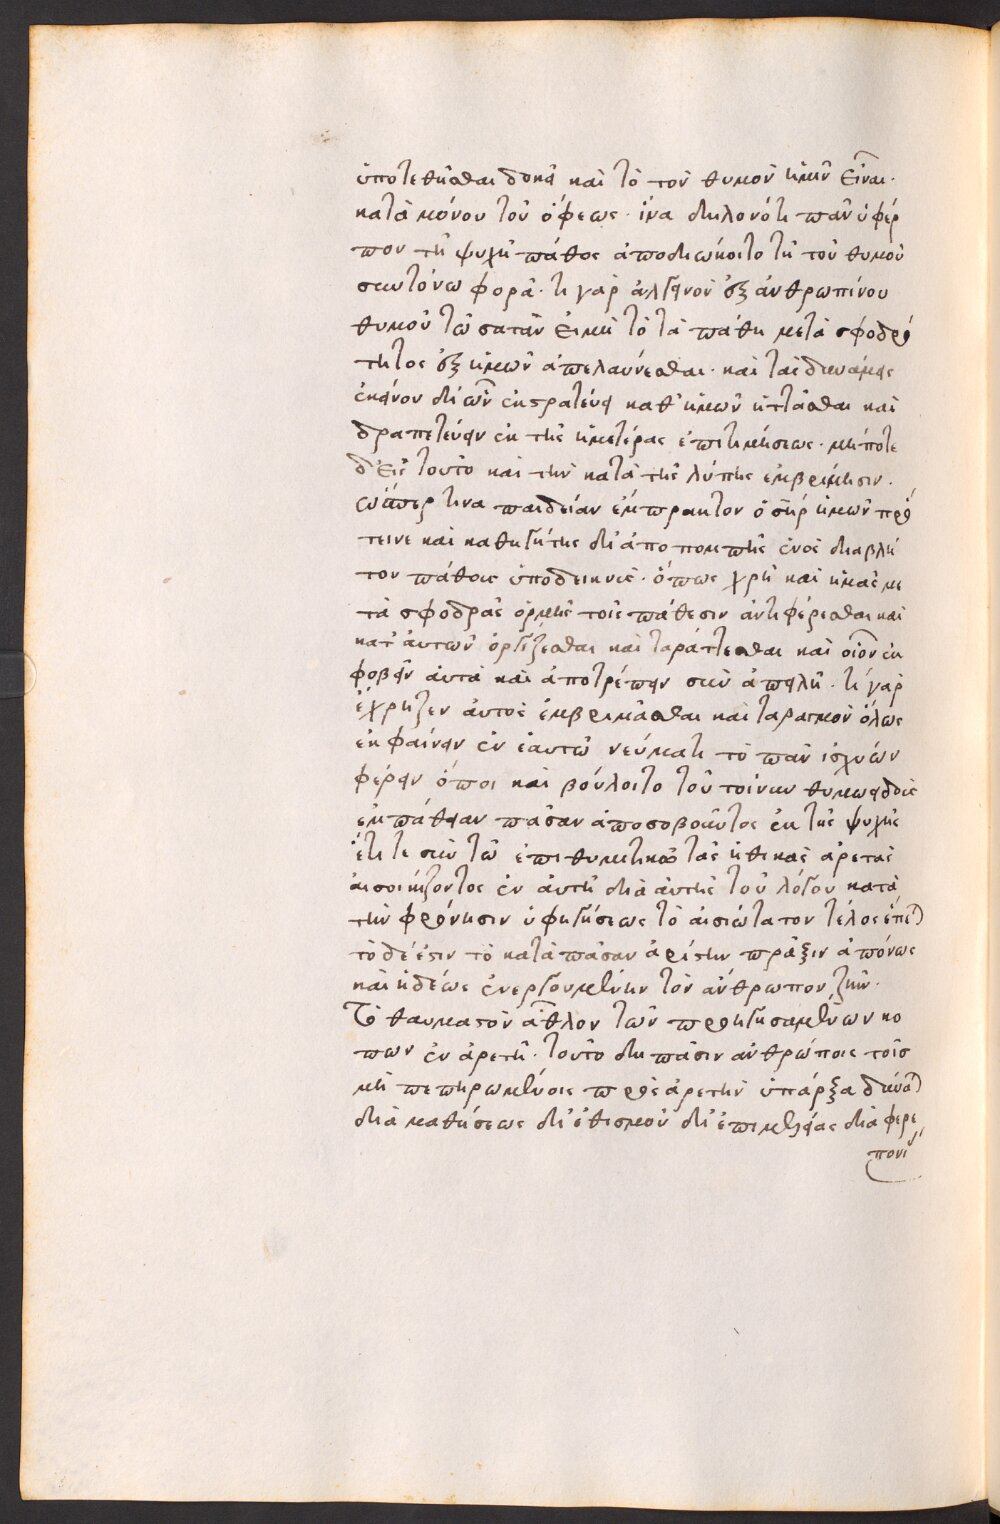 ὑποτεθεῖσθαι δοκεῖ καὶ τὸ τὸν θυμὸν ἡμῖν εἶναι·
κατὰ μόνου τοῦ ὄφεως· ἵνα δηλονότι πᾶν ὑφέρ
πον τῇ ψυχῇ πάθος ἀποδιώκοιτο τῇ τοῦ θυμοῦ
συντόνω φορᾶ· τί γὰρ ἀλγεινὸν ἐξ ἀνθρωπίνου
θυμοῦ τῶ σατᾶν εἰ μὴ τὸ τὰ πάθη μετὰ σφοδρό
τητος ἐξ ἡμῶν ἀπελαύνεσθαι· καὶ τὰς δυνάμεις
ἐκείνου δι' ὧν ἐκστρατεύει καθ' ἡμῶν ἡττᾶσθαι καὶ
δραπετεύειν ἐκ τῆς ἡμετέρας ἐπιτιμήσεως· μήποτε
δ' εἰς τοῦτο καὶ τὴν κατὰ τῆς λύπης ἐμβρίμησιν·
ὥσπερ τινα παιδείαν ἔμπρακτον ὁ σὴρ ἡμῶν πρό
τεινε καὶ καθηγητὴς δι' ἀποπομπῆς ἑνὸς διαβλή
του πάθους ὑποδεικνὺς· ὅπως χρὴ καὶ ἡμᾶς με
τὰ σφοδρᾶς ὁρμῆς τοῖς πάθεσιν ἀντιφέρεσθαι καὶ
κατ' αὐτῶν ὀργίζεσθαι καὶ ταράττεσθαι καὶ οἷον ἐκ
φοβεῖν αὐτὰ καὶ ἀποτρέπειν σὺν ἀπειλῇ· τί γὰρ
ἔχρηζεν αὐτὸς ἐμβριμᾶσθαι καὶ ταραγμὸν ὅλως
ἐκφαίνειν ἐν ἑαυτῶ νεύματι τὸ πᾶν ἰσχύων
φέρειν ὅποι καὶ βούλοιτο τοῦ τοίνυν θυμοειδοῦς
ἐμπάθειαν πᾶσαν ἀποσοβοῦντος ἐκ τῆς ψυχῆς
ἔτι τε σὺν τῶ ἐπιθυμητικῶ τὰς ἠθικὰς ἀρετὰς
εἰσοικίζοντος ἐν αὐτῇ διὰ αὐτῆς τοῦ λόγου κατὰ
τὴν φρόνησιν ὑφηγήσεως τὸ αἰσιώτατον τέλος ἕπετ
τὸ δέ ἐστιν τὸ κατὰ πᾶσαν ἀρίστην πρᾶξιν ἀπόνως
καὶ ἡδέως ἐνεργουμένην τὸν ἄνθρωπον ζῆν·
Τὸ θαυμαστὸν ἆθλον τῶν προηγησαμένων κό
πων ἐν ἀρετῇ· τοῦτο δὴ πᾶσιν ἀνθρώποις τοῖς
μὴ πεπηρωμένοις πρὸς ἀρετὴν ὑπάρξαι δυνα
διὰ μαθήσεως δι' ἐθισμοῦ δι' ἐπιμελείας διὰ φερε
πονί